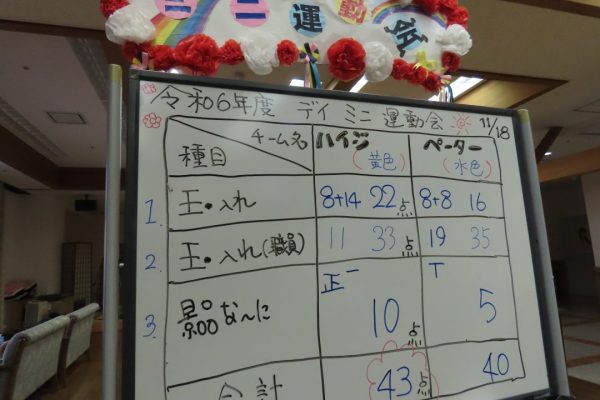 ミニ運動会
令和6年度 デイ ミニ 運動会 11/18
種目 チーム名 ハイジ (黄色) ペーター (水色)
1. 玉入れ 8+14 22点 8+8 16
2. 玉入れ(職員) 11 33点 19 35
3. 景品な〜に 正一 10点 T 5
合計 43点 40